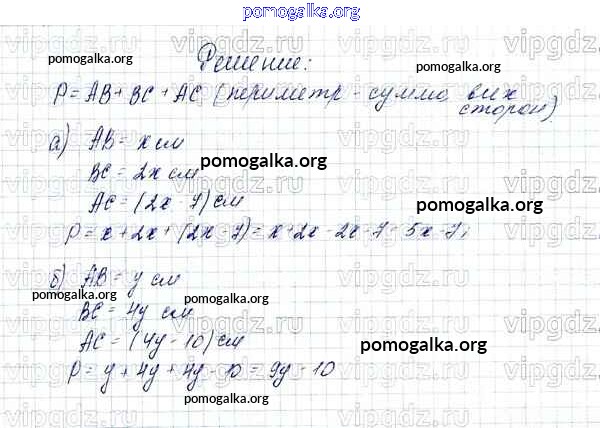 pomogalka.org
Решение:
pomogalka.org
pomogalka.org
P = AB + BC + AC (периметр - сумма всех
сторон)
а) AB = x см
pomogalka.org
BC = 2x см
AC = (2x - 7) см
pomogalka.org
P = x + 2x + (2x - 7) = x + 2x - 2x - 7 - 5x - 7;
б) AB = y см
pomogalka.org
pomogalka.org
BC = 4y см
AC = (4y - 10) см
pomogalka.org
P = y + 4y + 4y - 10 = 9y - 10
vipgdz.ru